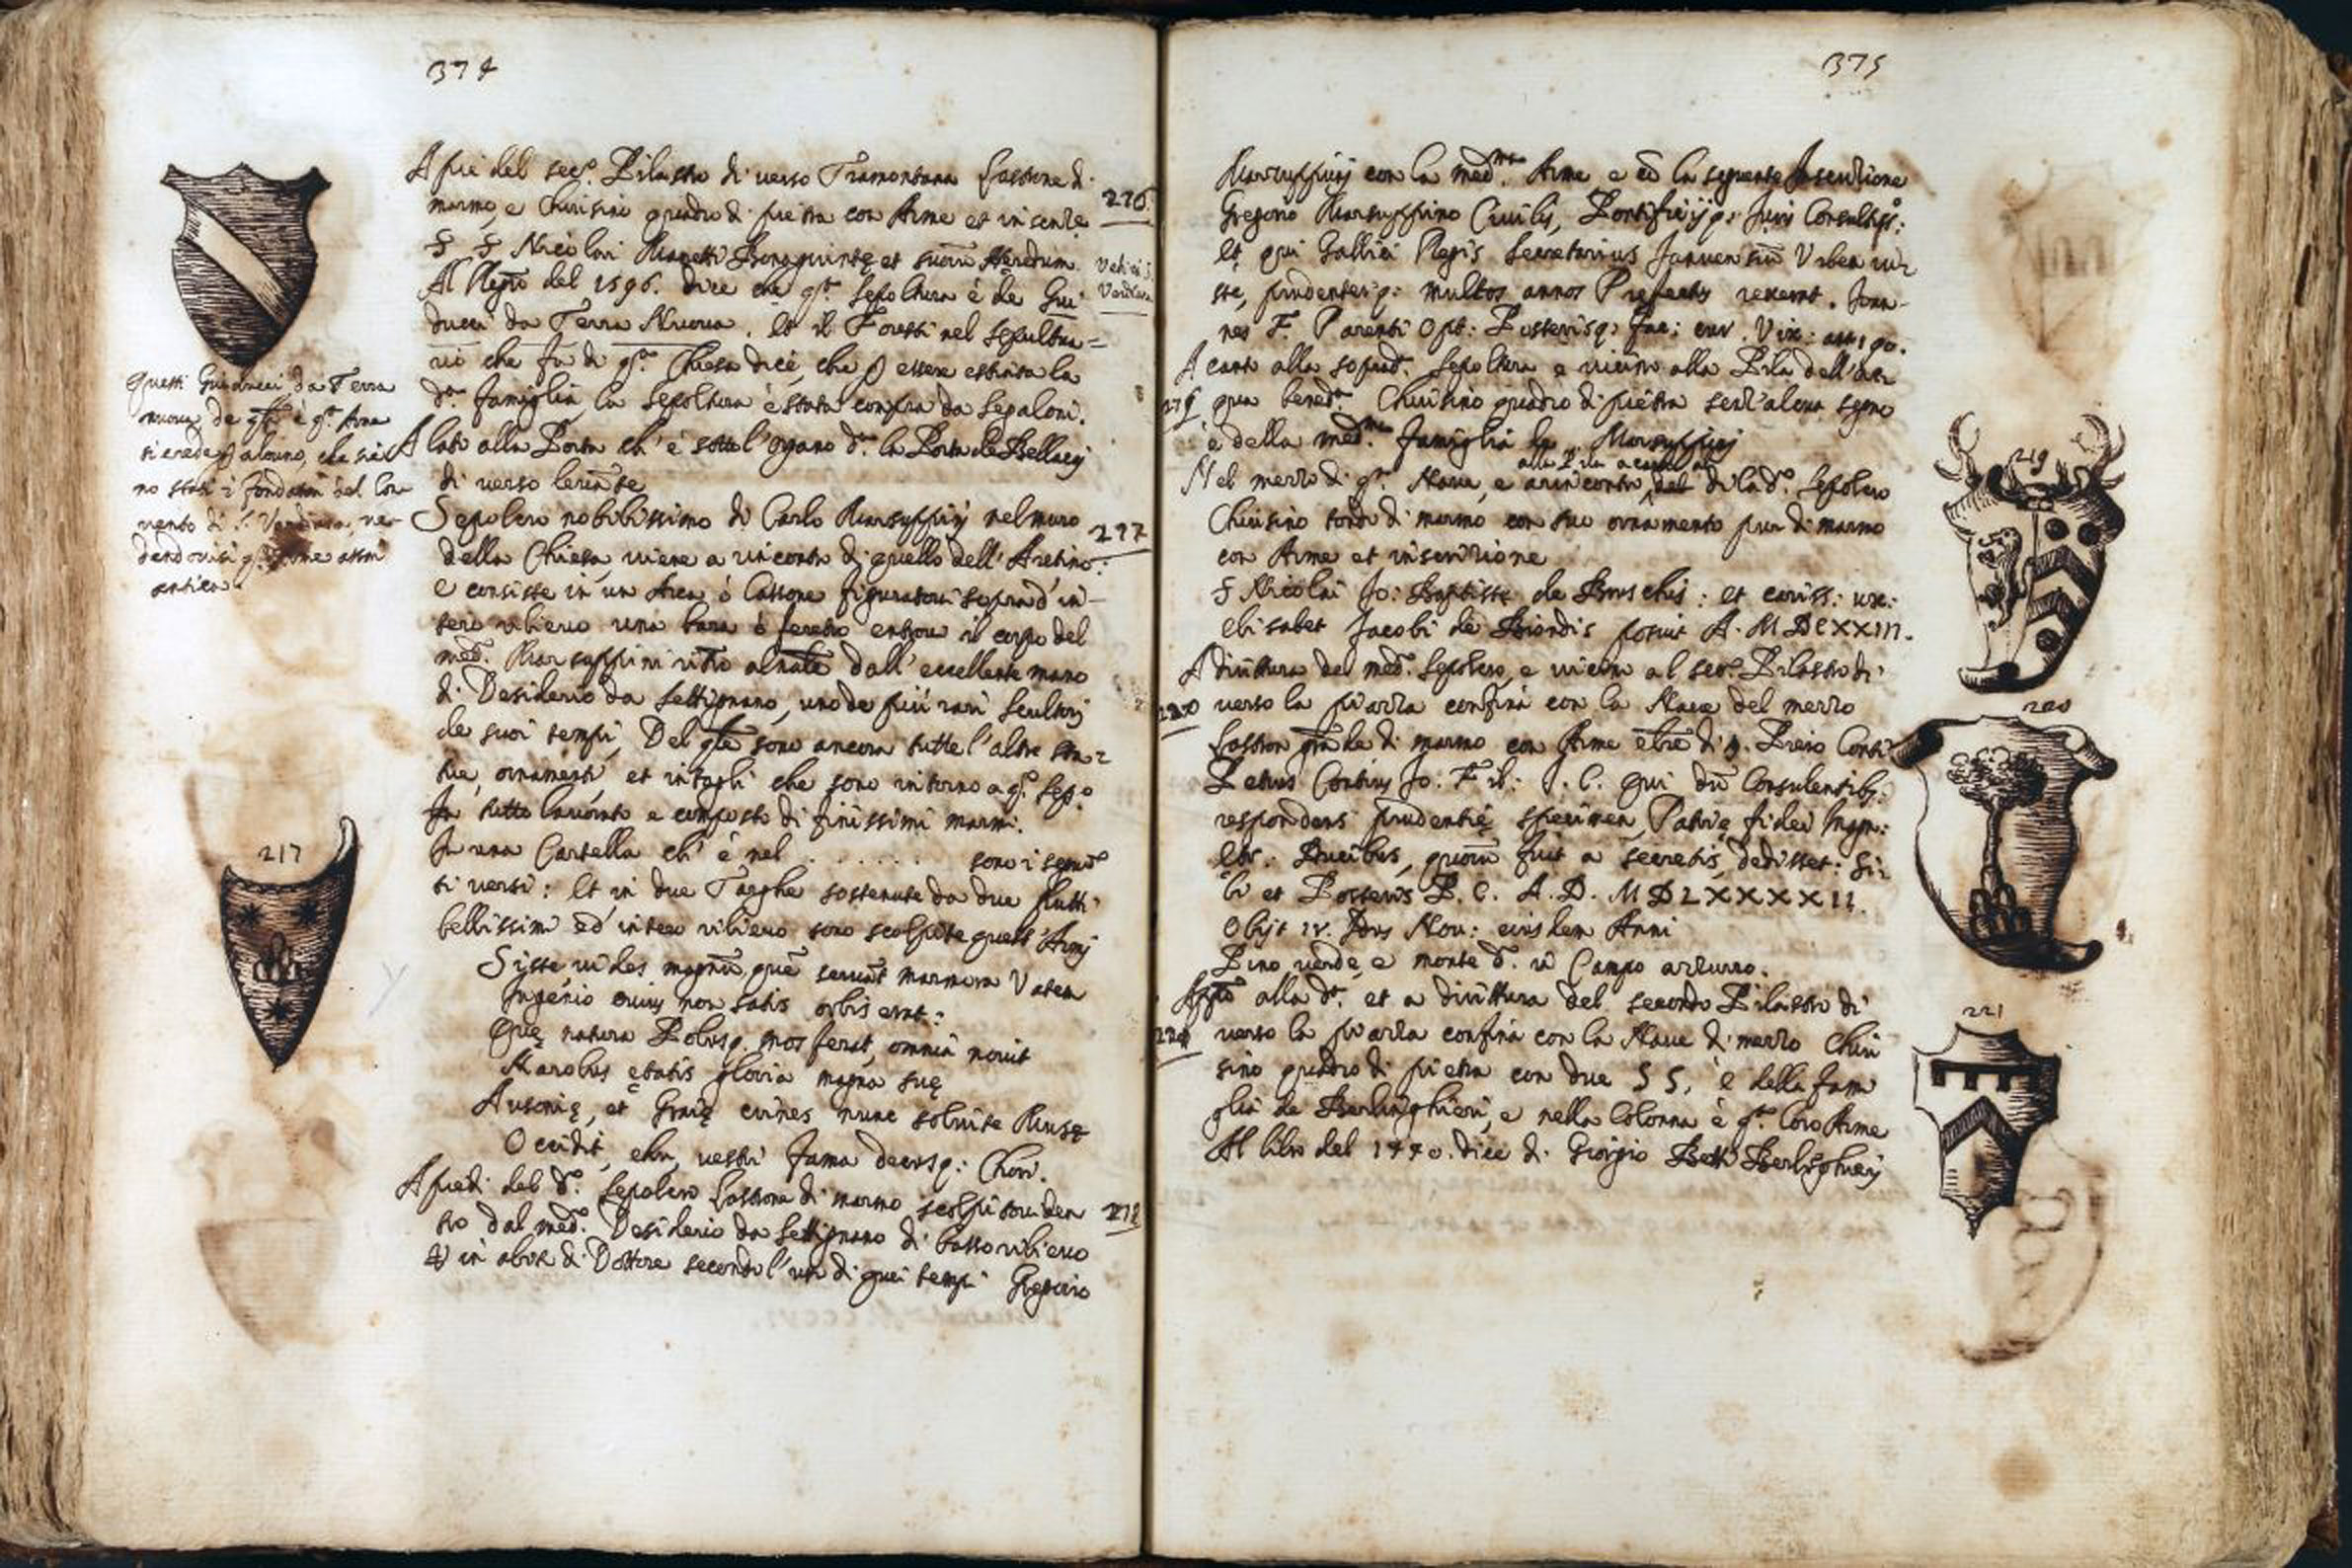 374
A piè del sec.º Pilastro di verso Tramontana Lastrone di
marmo, e Chiusino quadro di pietra con Arme et inscriz.e
S S Nicolai Manetti Bonaguintę et suoru Heredum
Al Regro del 1596. dice che q.ta sepoltura è de Gui
ducci da Terra Nuova. Et il Foresti nel sepultua=
rio che fa di q.ta Chiesa dice, che p essere estinta la
d.ta famiglia la sepoltura è stata compra da Sepaloni.
A lato alla Porta ch' è sotto l'Organo d.ta la Porta de Bellacij
di verso levāte
Sepolcro nobilissimo di Carlo Marsuppinj nel muro
della Chiesa, viene a rincontro di quello dell' Aretino:
e consiste in un Arca ò Cassone figuratovi soprad' in-
tero rilievo una bara ò feretro entrovi il corpo del
med. Marsuppini ritto al nāle dall' eccellente mano
di Desiderio da Settignano, uno de più rari scultorj
de suoi tempi, Del q̄le sono ancora tutte l' altre sta-
tue, ornamenti, et intagli che sono intorno a q.º sep.º
In tutto lavorato e composto di finissimi marmi.
In una Cartella ch' è nel . . . . . . sono i seguē
ti versi: Et in due Targhe sostenute da due Putti
bellissimi ed' intero rilievo sono scolpite quest' Armj
Siste vides magnū, quē servāt marmora Vatem
Ingenio cuius non satis orbis erat:
Quę natura Polusq. mos ferat, omnia novit
Karolus ętatis gloria magna suę
Ausonię, et Graię crines nunc solvite Musę
Occidit, eheu, vestri fama decusq: Chori.
A piedi del d.º Sepolcro Lastrone di marmo scolpitovi den
tro dal med.º Desiderio da Settignano di basso rilievo
in abito di Dottore secondo l' uso di quei tempi Gregorio
216.
217
218
Questi Guiducci da Terra
nuova de q̄li è q.ta Arme
si crede p alcuno, che sie
no stati i fondatori del Con
vento di S. Verdiana, ve-
dendovisi q.ta Arme assai
antica.
217
375
Marsuppinj con la med.ma Arme e cō la seguente Inscrizione
Gregorio Marsuppino Civilis, Pontificijq: Juris Consultiss:
et qui Gallici Regis Secretarius Januensiū Urbem iu-
ste, prudenterq: multos annos Prefectus rexerat. Joan-
nes F. Parenti Opt: Posterisq: fac: cur. Vix: ann: 90.
A canto alla soprad.ta sepoltura e vicino alla Pila dell' ac
qua bened.ta Chiusino quadro di pietra senz' alcun segno
è della med.ma famiglia de Marsuppinj
Nel mezzo di q.ta Nave, e arincontro alla Pila acanto al di là d.º Sepolcro
Chiusino tondo di marmo con suo ornamento pur di marmo
con Arme et inscrizione
S Nicolai Jo: Baptistę de Bruschis: et cariss: uxo:
Elisabet Jacobi de Biondis posuit A. MDCXXIII.
A dirittura del med.º Sepolcro, e vicino al sec.º Pilastro di
verso la piazza confina con la Nave del mezzo
Lastron grāde di marmo con Arme etc̄ di S. Piero Conti
Petrus Contius Jo. Fil: J. C. qui dū Consulentibq.
respondens prudentię specimen, Patrię fidei Magn:
Etr: Ducibus, quorū fuit a secretis, dedisset: Si-
bi et Posteris P. C. A. D. MDLXXXXII.
Obijt IV. Idus Nov: eiusdem Anni
Pino verde, e monte d.º in Campo azzurro.
App.o alla d.ta et a dirittura del secondo Pilastro di
verso la piazza confina con la Nave di mezzo Chiu
sino quadro di pietra con due S S, è della Fam
glia de Berlinghieri, e nella Colonna è q.ta loro Arme
Al libro del 1440. dice di Giorgio Betti Berlinghierj
219
220
219
220
221